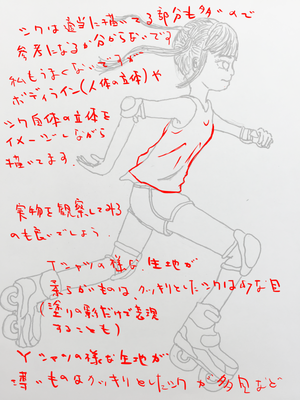 シワは適当に描いてる部分も多いので
参考になるか分からないですが
私もうまくないですが
ボディライン(人体の立体)や
シワ自体の立体を
イメージしながら
描いてます
実物を観察してみる
のも良いでしょう.
Tシャツの様な生地が
柔らかいものは、クッキリとしたシワは少な目
(塗りの影だけで表現
することも)
Yシャツの様な生地が
薄いものはクッキリとしたシワが多目など